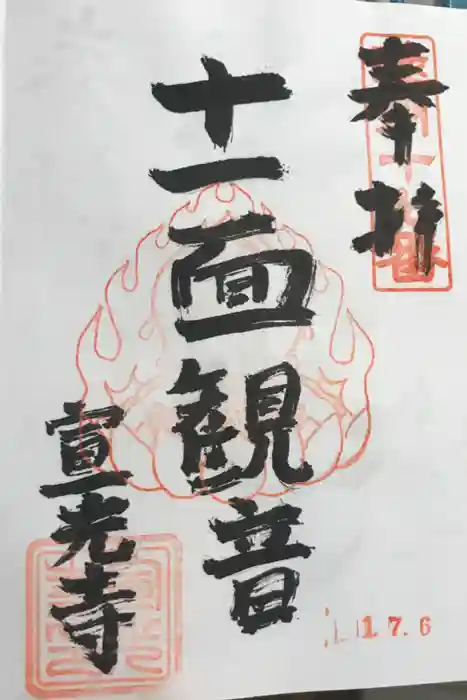 奉拝
十一面観音
宣光寺
1.7.6